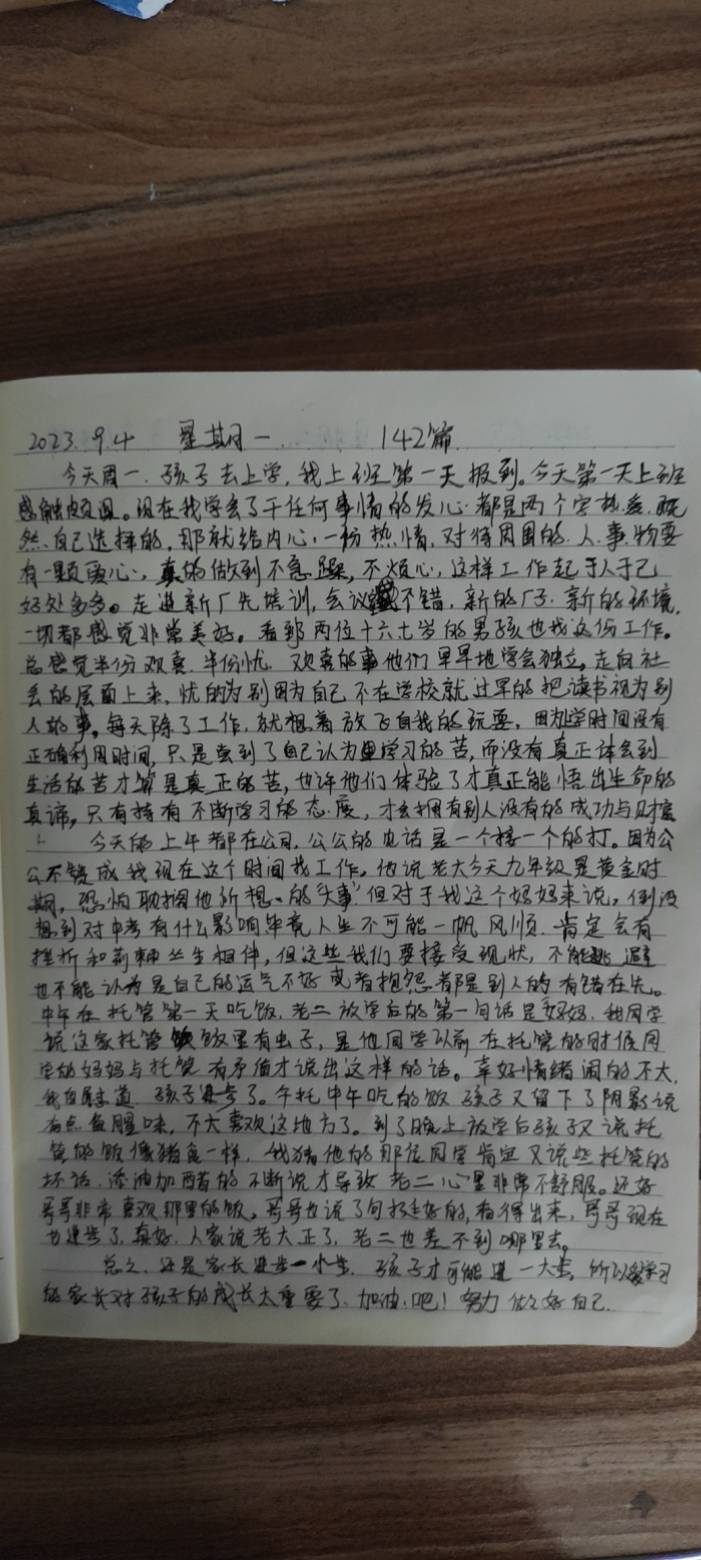 2023.9.4 星期一 142篇
今天周一，孩子去上学，我上班第一天报到。今天第一天上班
感触颇深。现在我学会了干任何事情的发心都是两个字热爱，既
然自己选择的，那就给内心一份热情，对待周围的人、事、物要
有一颗爱心，真的做到不急躁，不烦心，这样工作起于人于己
好处多多。走进新厂先培训，会议不错，新的厂子，新的环境，
一切都感觉非常美好。看到两位十六七岁的男孩也找这份工作。
总感觉半份欢喜，半份忧，欢喜的事他们早早地学会独立，走向社
会的层面上来，忧的为别因为自己不在学校就过早的把读书视为别
人的事。每天除了工作，就想着放飞自我的玩耍，因为学时间没有
正确利用时间，只是尝到了自己认为学习的苦，而没有真正体会到
生活的苦才算是真正的苦，也许他们体验了才真正能悟出生命的
真谛，只有持有不断学习的态度，才会拥有别人没有的成功与财富
今天的上午都在公司，公公的电话是一个接一个的打。因为公
公不赞成我现在这个时间找工作。他说老大今天九年级是黄金时
期，恐怕耽搁他所想的"大事"但对于我这个妈妈来说，倒没
想到对中考有什么影响毕竟人生不可能一帆风顺，肯定会有
挫折和荆棘丛生相伴，但这些我们要接受现状，不能逃避
也不能认为是自己的运气不好或者抱怨都是别人的有错在先。
中午在托管第一天吃饭，老二放学后的第一句话是妈妈，我同学
说这家托管饭里有虫子，是他同学以前在托管的时候同
学的妈妈与托管有矛盾才说出这样的话。幸好情绪闹的不大，
孩子进步了。午托中午吃的饭孩子又留下了阴影说
有点鱼腥味，不大喜欢这地方了。到了晚上放学后孩子又说托
管的饭像猪食一样，我猜他的那位同学肯定又说些托管的
坏话，添油加醋的不断说才导致老二心里非常不舒服。还好
哥哥非常喜欢那里的饭，哥哥也说了句挺好的，看得出来，哥哥现在
也进步了，真好，人家说老大正了，老二也差不到哪里去。
总之，还是家长进步一小步，孩子才可能进一大步，所以爱学习
的家长对孩子的成长太重要了，加油吧！努力做好自己.